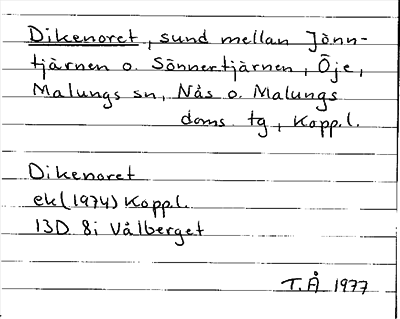 Dikenoret, sund mellan Jönn-
tjärnen o. Sönnertjärnen, Öje,
Malungs sn, Nås o. Malungs
doms. tg, Kopp.l.
Dikenoret
ek (1974) Kopp.l.
13D 8i Vålberget
T.Å 1977